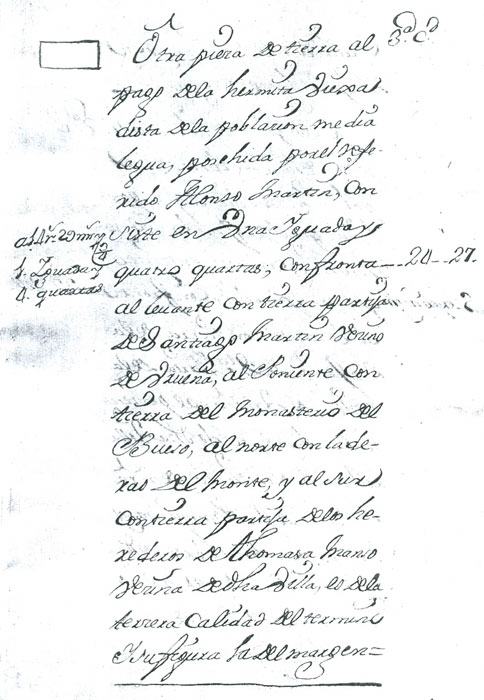 Otra pieza de tierra al, 3.ª C.ᵈ
pago dela hermita
dista dela poblacion media
legua, posehida porel refe-
rido Alonso Martin, con
siste en Vna Iguada y
1. Iguada y
4. quartas
quatro quartas; confronta 24 27.
al levante con tierra partija
de Santiago Martin Vezino
de Urueña, al Poniente con
tierra del Monasterio del
Bueso, al norte con lade-
ras del monte, y al sur
con tierra partija delos he-
rederos de Thomasa Manso
Vezina de dha Villa, es dela
terzera Calidad del termino
Isu figura la del margen=